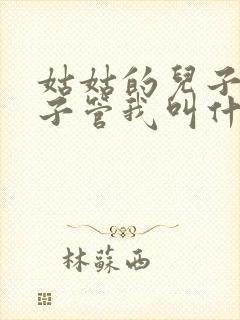 姑姑的兒子
子管我叫什
林蘇西